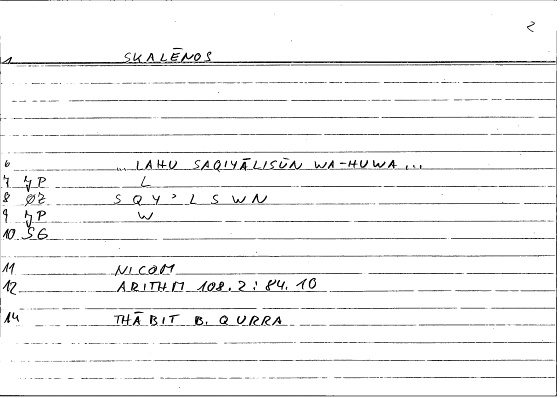 2
1 SKALĒNOS
6 ... LAHU SAQIYĀLISŪN WA-HUWA ...
7 L
8 ØZ S Q Y ʾ L S W N
9 W
10 SG
11 NICOM
12 ARITHM 108.2 : 84.10
14 THĀBIT B. QURRA